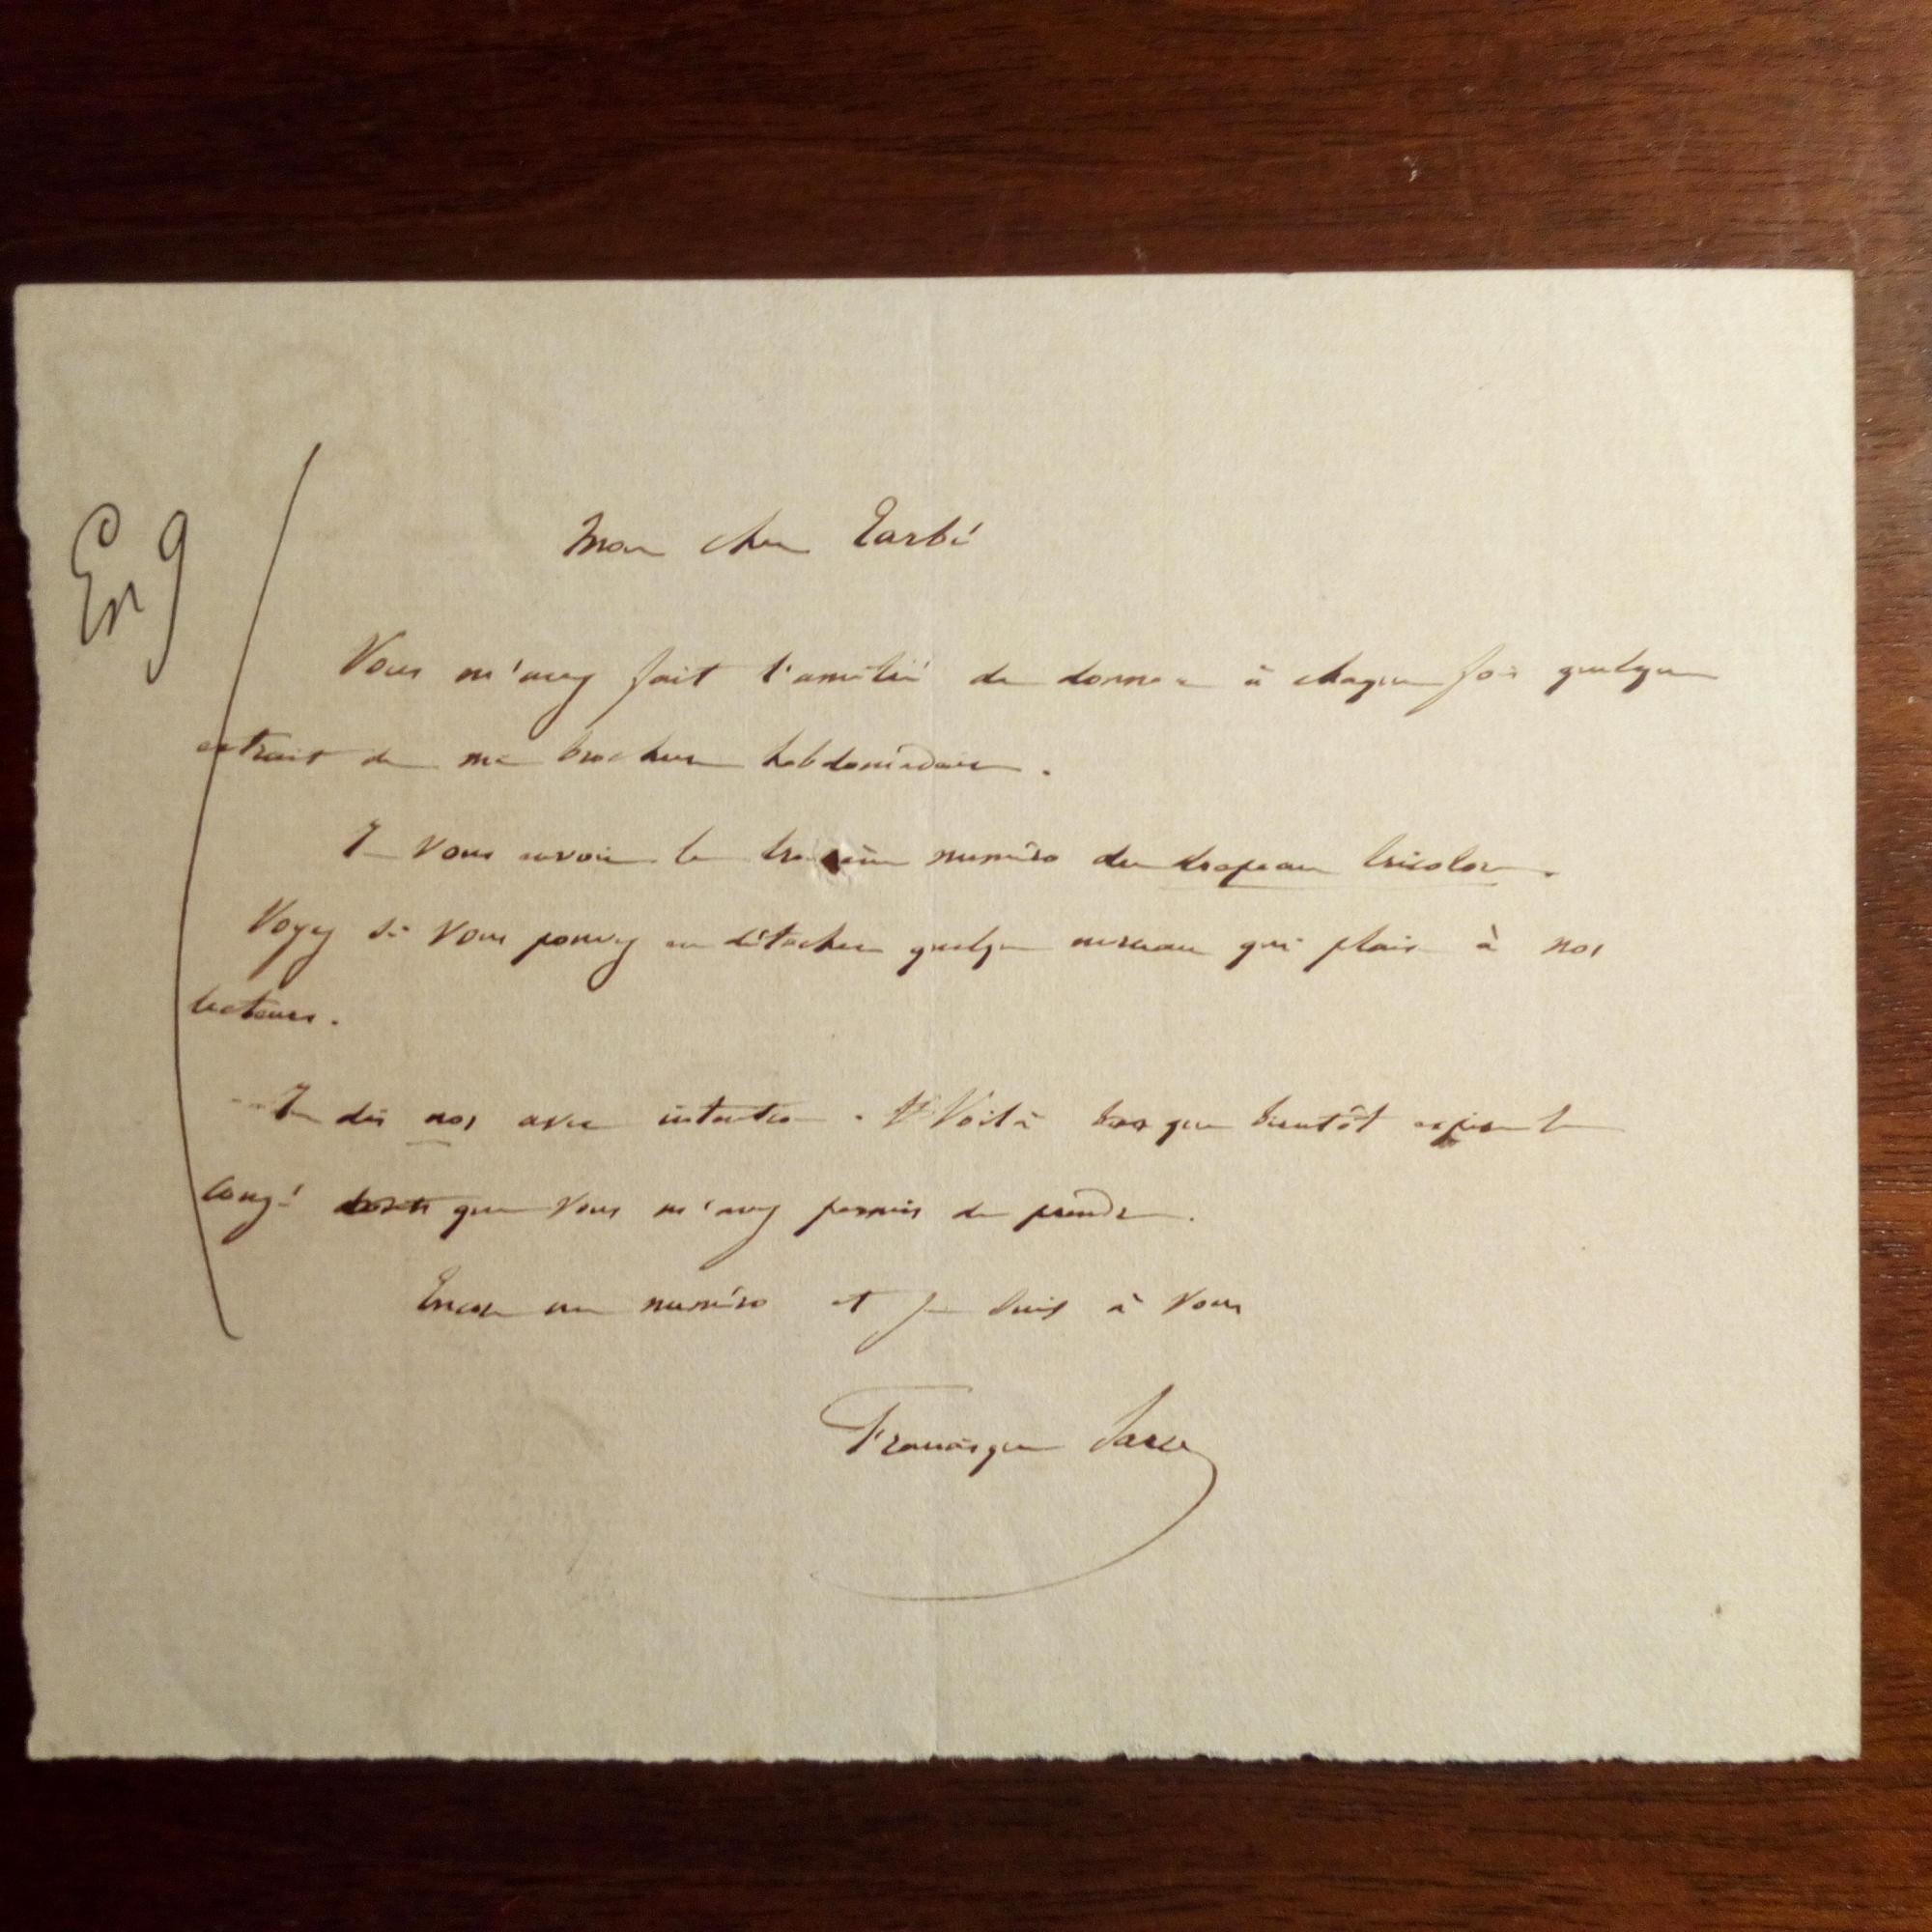 En 9
Mon cher Tarbé
Vous m'avez fait l'amitié de donner à chaque fois quelque
extrait de ma brochure hebdomadaire.
Je vous envoie le troisième numéro du drapeau tricolore.
Voyez si vous pouvez en détacher quelque morceau qui plaise à nos
lecteurs.
Je dis nos avec intention. Voilà que bientôt expire le
congé que vous m'avez permis de prendre.
Encore un numéro et je suis à vous
Francisque Sarcey